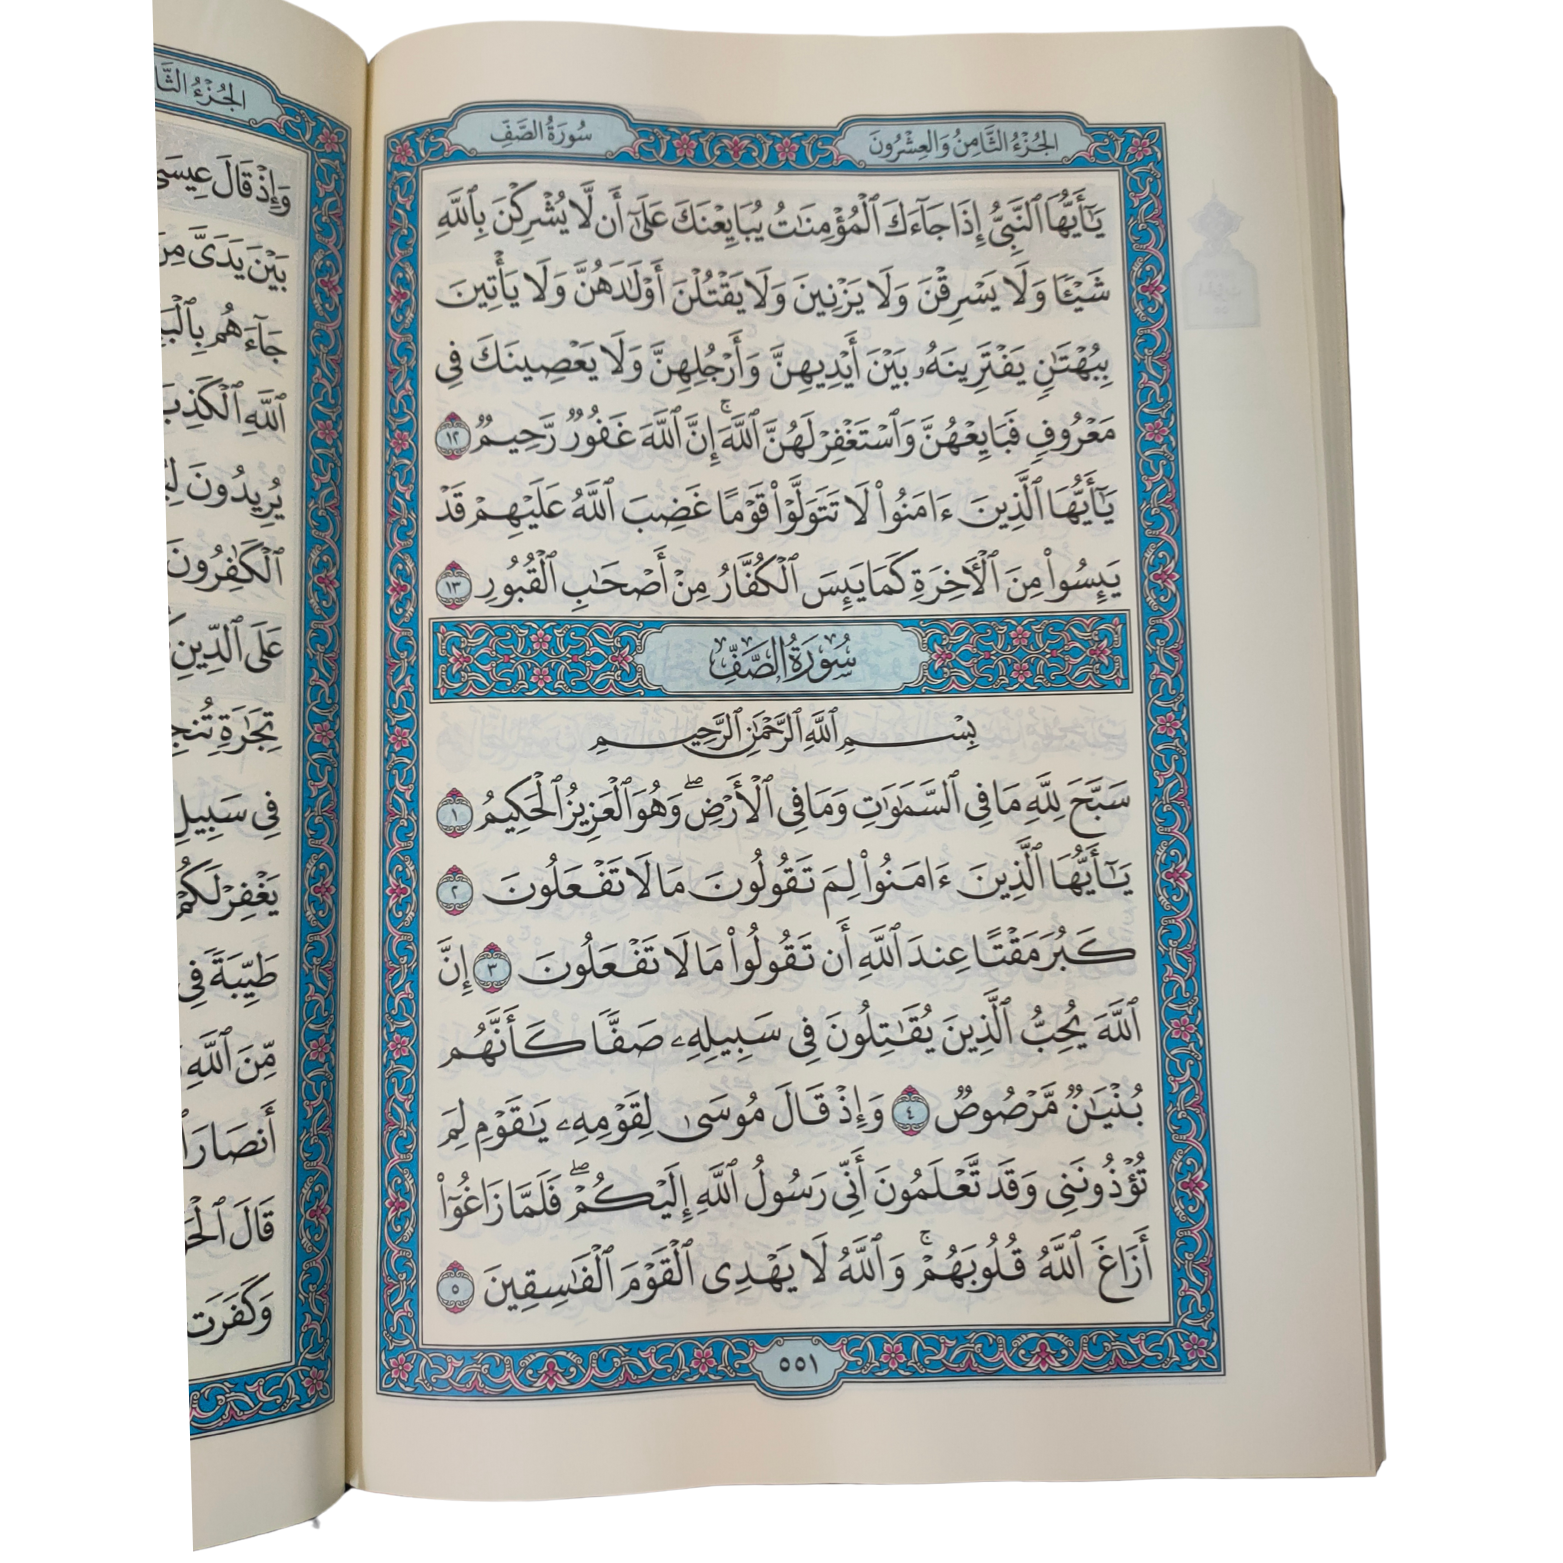 الجُزْءُ الثَّامِنُ وَالعِشْرُونَ
سُورَةُ الصَّفِّ
يَٰٓأَيُّهَا ٱلنَّبِىُّ إِذَا جَآءَكَ ٱلْمُؤْمِنَٰتُ يُبَايِعْنَكَ عَلَىٰٓ أَن لَّا يُشْرِكْنَ بِٱللَّهِ
شَيْـًٔا وَلَا يَسْرِقْنَ وَلَا يَزْنِينَ وَلَا يَقْتُلْنَ أَوْلَٰدَهُنَّ وَلَا يَأْتِينَ
بِبُهْتَٰنٍ يَفْتَرِينَهُۥ بَيْنَ أَيْدِيهِنَّ وَأَرْجُلِهِنَّ وَلَا يَعْصِينَكَ فِى
مَعْرُوفٍ فَبَايِعْهُنَّ وَٱسْتَغْفِرْ لَهُنَّ ٱللَّهَ ۚ إِنَّ ٱللَّهَ غَفُورٌ رَّحِيمٌ ١٢
يَٰٓأَيُّهَا ٱلَّذِينَ ءَامَنُوا۟ لَا تَتَوَلَّوْا۟ قَوْمًا غَضِبَ ٱللَّهُ عَلَيْهِمْ قَدْ
يَئِسُوا۟ مِنَ ٱلْءَاخِرَةِ كَمَا يَئِسَ ٱلْكُفَّارُ مِنْ أَصْحَٰبِ ٱلْقُبُورِ ١٣
سُورَةُ الصَّفِّ
بِسْمِ ٱللَّهِ ٱلرَّحْمَٰنِ ٱلرَّحِيمِ
سَبَّحَ لِلَّهِ مَا فِى ٱلسَّمَٰوَٰتِ وَمَا فِى ٱلْأَرْضِ ۖ وَهُوَ ٱلْعَزِيزُ ٱلْحَكِيمُ ١
يَٰٓأَيُّهَا ٱلَّذِينَ ءَامَنُوا۟ لِمَ تَقُولُونَ مَا لَا تَفْعَلُونَ ٢
كَبُرَ مَقْتًا عِندَ ٱللَّهِ أَن تَقُولُوا۟ مَا لَا تَفْعَلُونَ ٣ إِنَّ
ٱللَّهَ يُحِبُّ ٱلَّذِينَ يُقَٰتِلُونَ فِى سَبِيلِهِۦ صَفًّا كَأَنَّهُم
بُنْيَٰنٌ مَّرْصُوصٌ ٤ وَإِذْ قَالَ مُوسَىٰ لِقَوْمِهِۦ يَٰقَوْمِ لِمَ
تُؤْذُونَنِى وَقَد تَّعْلَمُونَ أَنِّى رَسُولُ ٱللَّهِ إِلَيْكُمْ ۖ فَلَمَّا زَاغُوٓا۟
أَزَاغَ ٱللَّهُ قُلُوبَهُمْ ۚ وَٱللَّهُ لَا يَهْدِى ٱلْقَوْمَ ٱلْفَٰسِقِينَ ٥
٥٥١
الجُزْءُ
وَإِذْ قَالَ عِيسَى
بَيْنَ يَدَىَّ مِنَ
جَآءَهُم
ٱللَّهِ ٱلْكَذِبَ
يُرِيدُونَ
ٱلْكَٰفِرُونَ
عَلَى ٱلدِّينِ
تِجَٰرَةٍ
فِى سَبِيلِ
يَغْفِرْ لَكُمْ
طَيِّبَةً فِى
مِّنَ ٱللَّهِ
أَنصَارَ
قَالَ
وَكَفَرَت